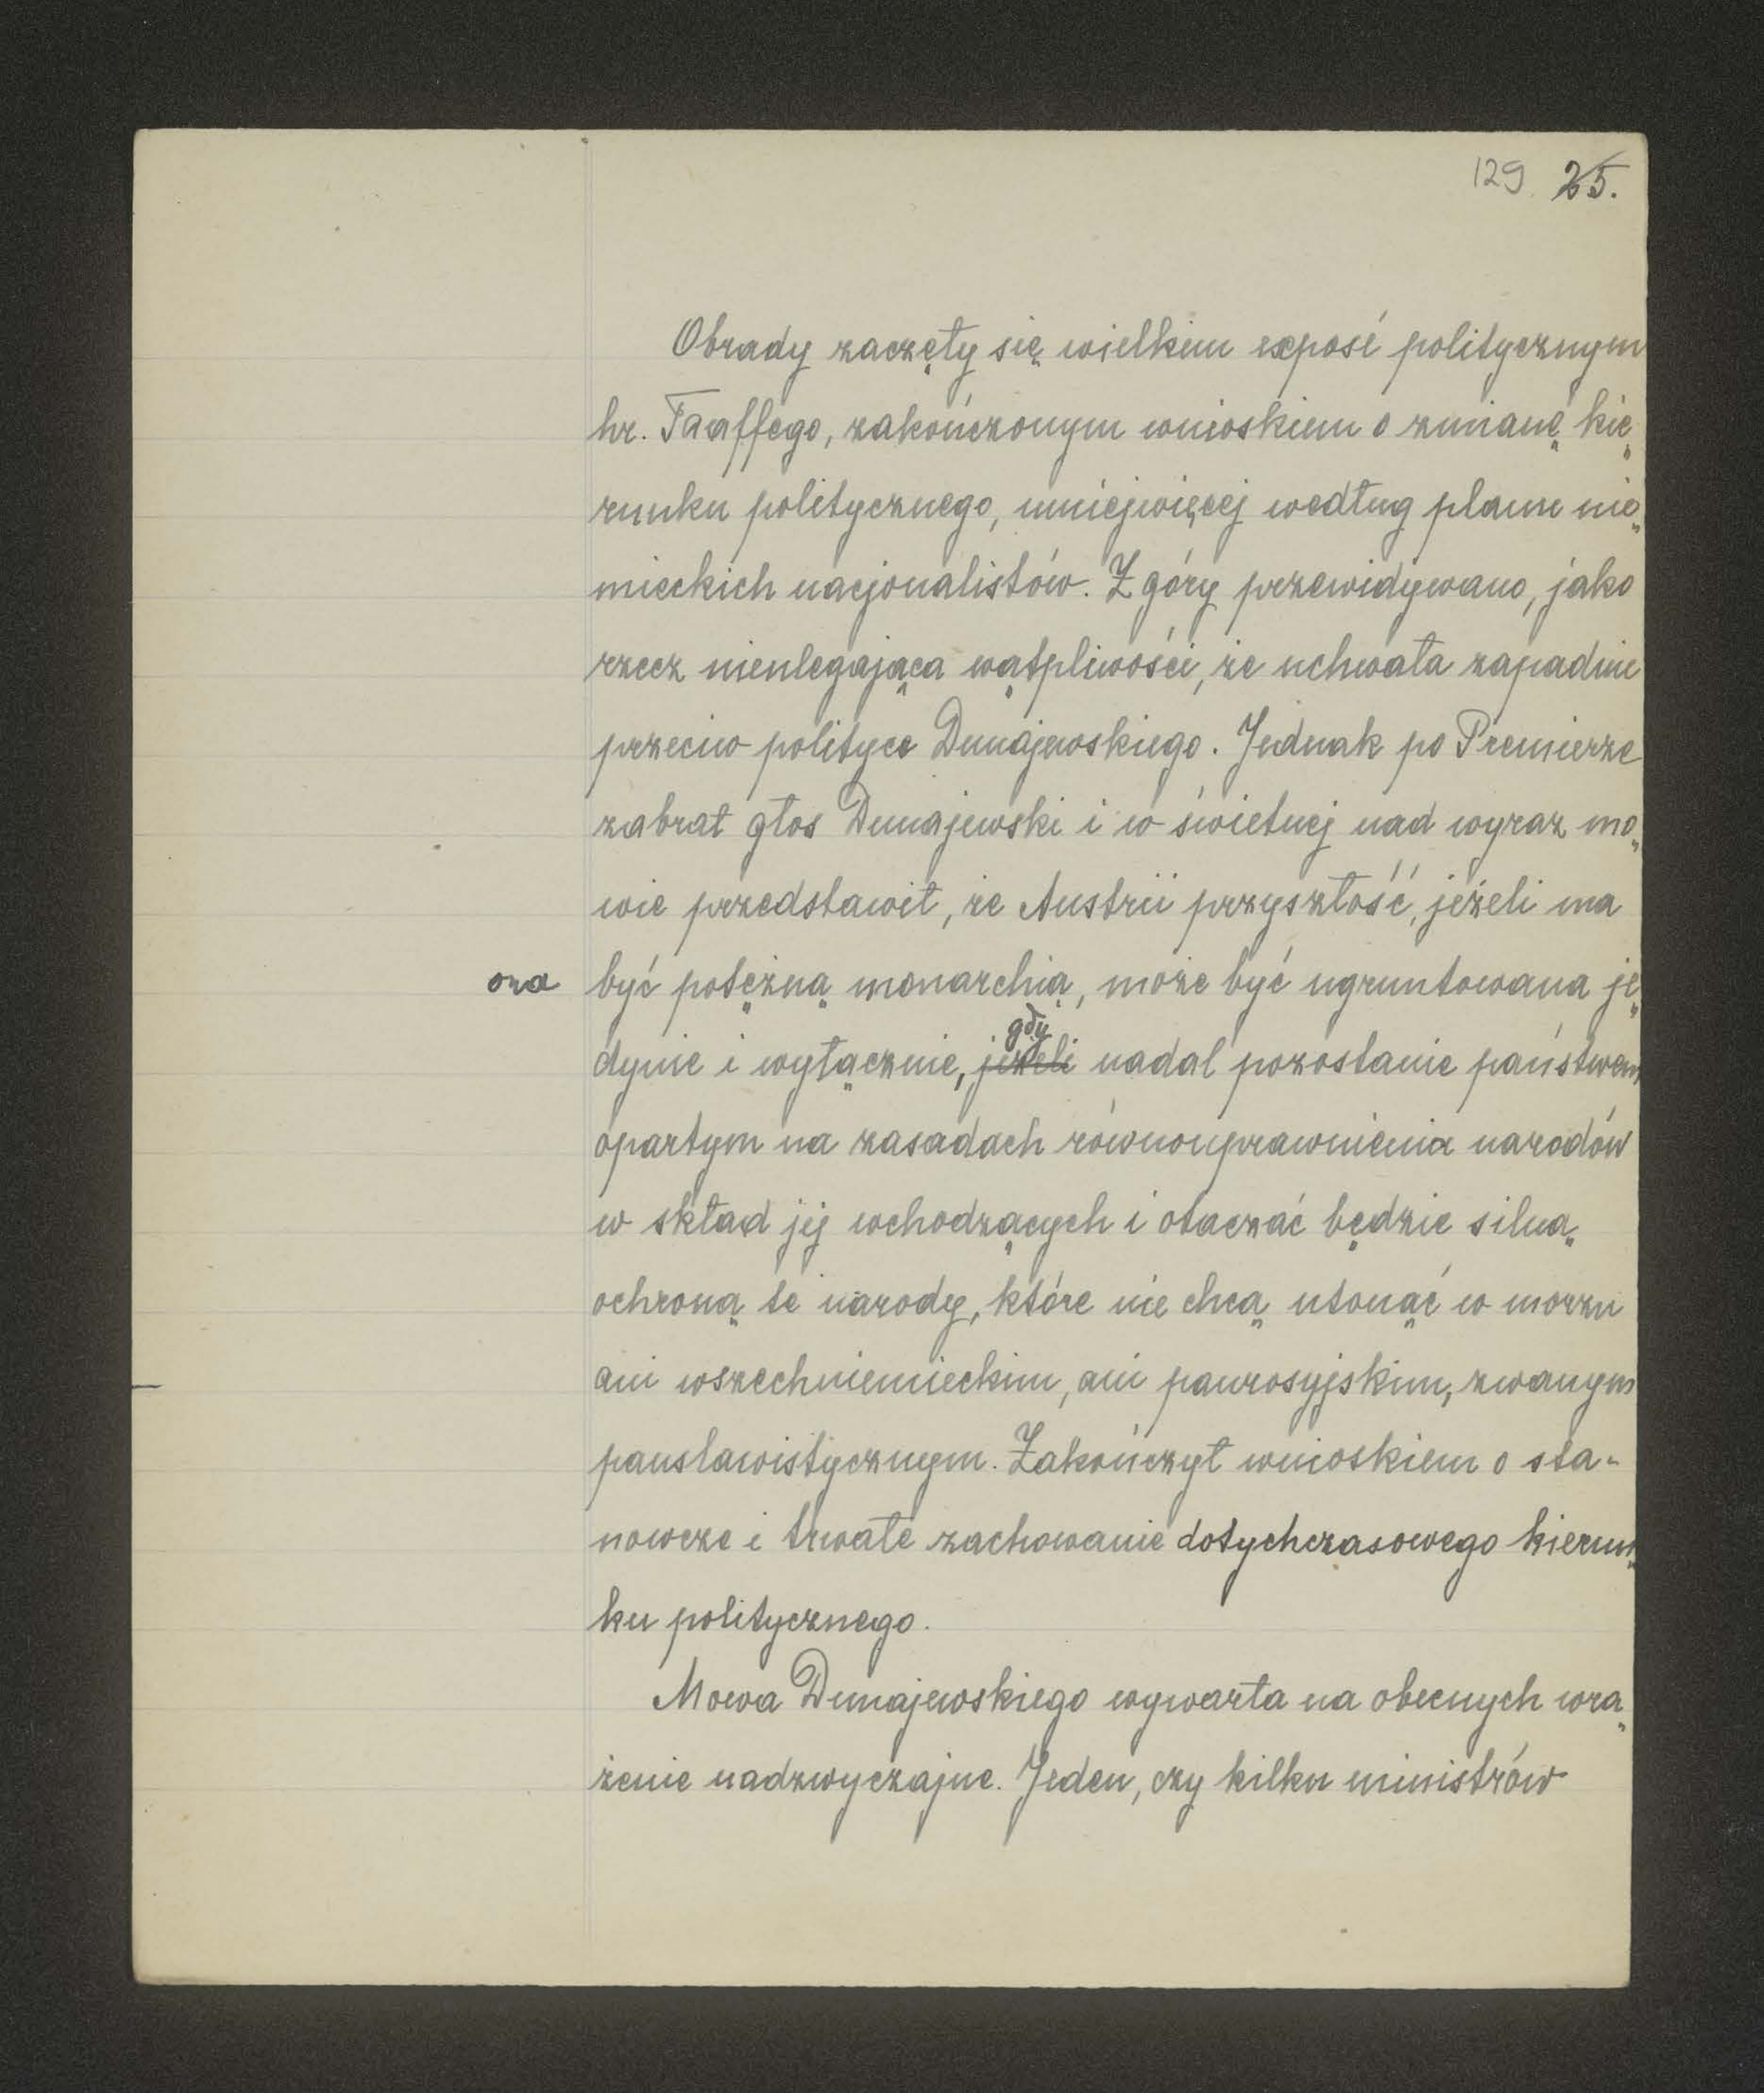 129 25.
Obrady zaczęły się wielkiem exposé politycznym
hr. Taaffego, zakończonym wnioskiem o zmianę kie„
runku politycznego, mniejwięcej według planu nie„
mieckich nacjonalistów. Z góry przewidywano, jako
rzecz nieulegającą wątpliwości, że uchwała zapadnie
przeciw polityce Dunajewskiego. Jednak po Premierze
zabrał głos Dunajewski i w świetnej nad wyraz mo„
wie przedstawił, że Austrii przyszłość, jeżeli ma
ona być potężną monarchią, może być ugruntowana je„
gdy
dynie i wyłącznie, jeżeli nadal pozostanie państwem
opartym na zasadach równouprawnienia narodów
w skład jej wchodzących i otaczać będzie silną
ochroną te narody, które nie chcą utonąć w morzu
ani wszechniemieckim, ani panrosyjskim, zwanym
panslawistycznym. Zakończył wnioskiem o sta-
nowcze i trwałe zachowanie dotychczasowego kierun„
ku politycznego.
Mowa Dunajewskiego wywarła na obecnych wra„
żenie nadzwyczajne. Jeden, czy kilku ministrów